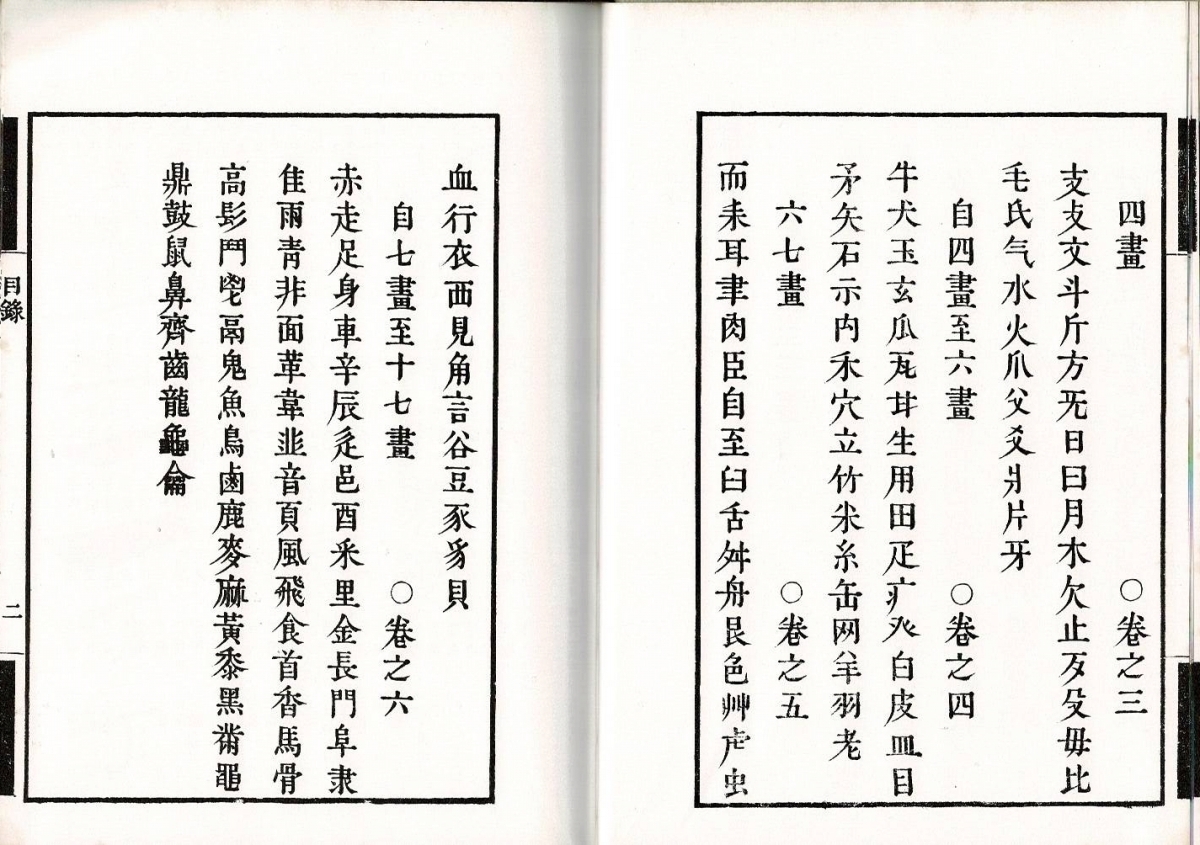 四畫 ○卷之三
支攴文斗斤方无日曰月木欠止歹殳毋比
毛氏气水火爪父爻爿片牙
自四畫至六畫 ○卷之四
牛犬玉玄瓜瓦甘生用田疋疒癶白皮皿目
矛矢石示禸禾穴立竹米糸缶网羊羽老
六七畫 ○卷之五
而耒耳聿肉臣自至臼舌舛舟艮色艸虍虫
血行衣襾見角言谷豆豕豸貝
自七畫至十七畫 ○卷之六
赤走足身車辛辰辵邑酉釆里金長門阜隶
隹雨青非面革韋韭音頁風飛食首香馬骨
高髟鬥鬯鬲鬼魚鳥鹵鹿麥麻黃黍黑黹黽
鼎鼓鼠鼻齊齒龍龜龠
目錄
二